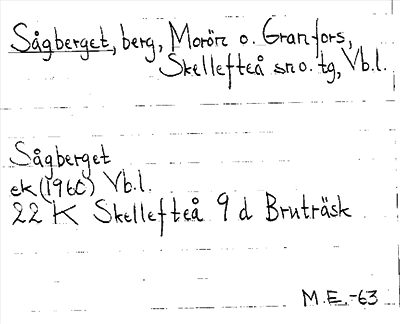 Sågberget, berg, Morön o. Granfors,
Skellefteå sn o. tg, Vb.l.
Sågberget
ek (1960) Vb.l.
22 K Skellefteå 9 d Bruträsk
M.E.-63